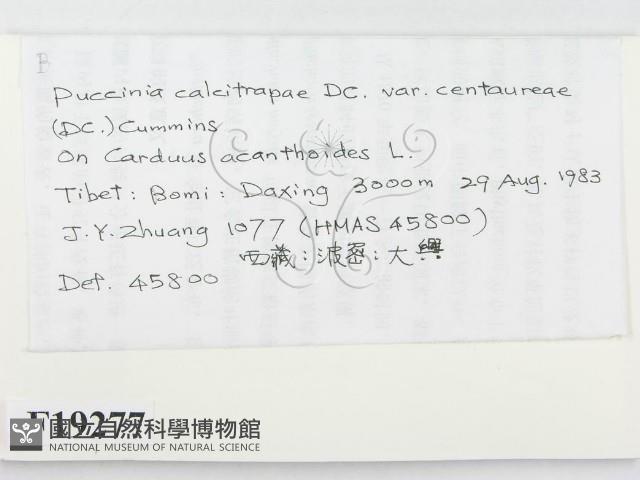 B
Puccinia calcitrapae DC. var. centaureae
(DC.) Cummins
On Carduus acanthoides L.
Tibet: Bomi: Daxing 3000m 29 Aug. 1983
J.Y. Zhuang 1077 (HMAS 45800)
西藏:波密:大興
Def. 45800
F19277
國立自然科學博物館
NATIONAL MUSEUM OF NATURAL SCIENCE